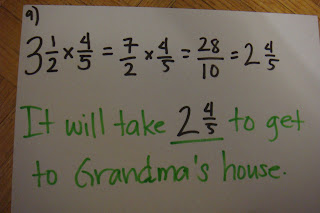 9)
3 1/2 × 4/5 = 7/2 × 4/5 = 28/10 = 2 4/5
It will take 2 4/5 to get
to Grandma's house.